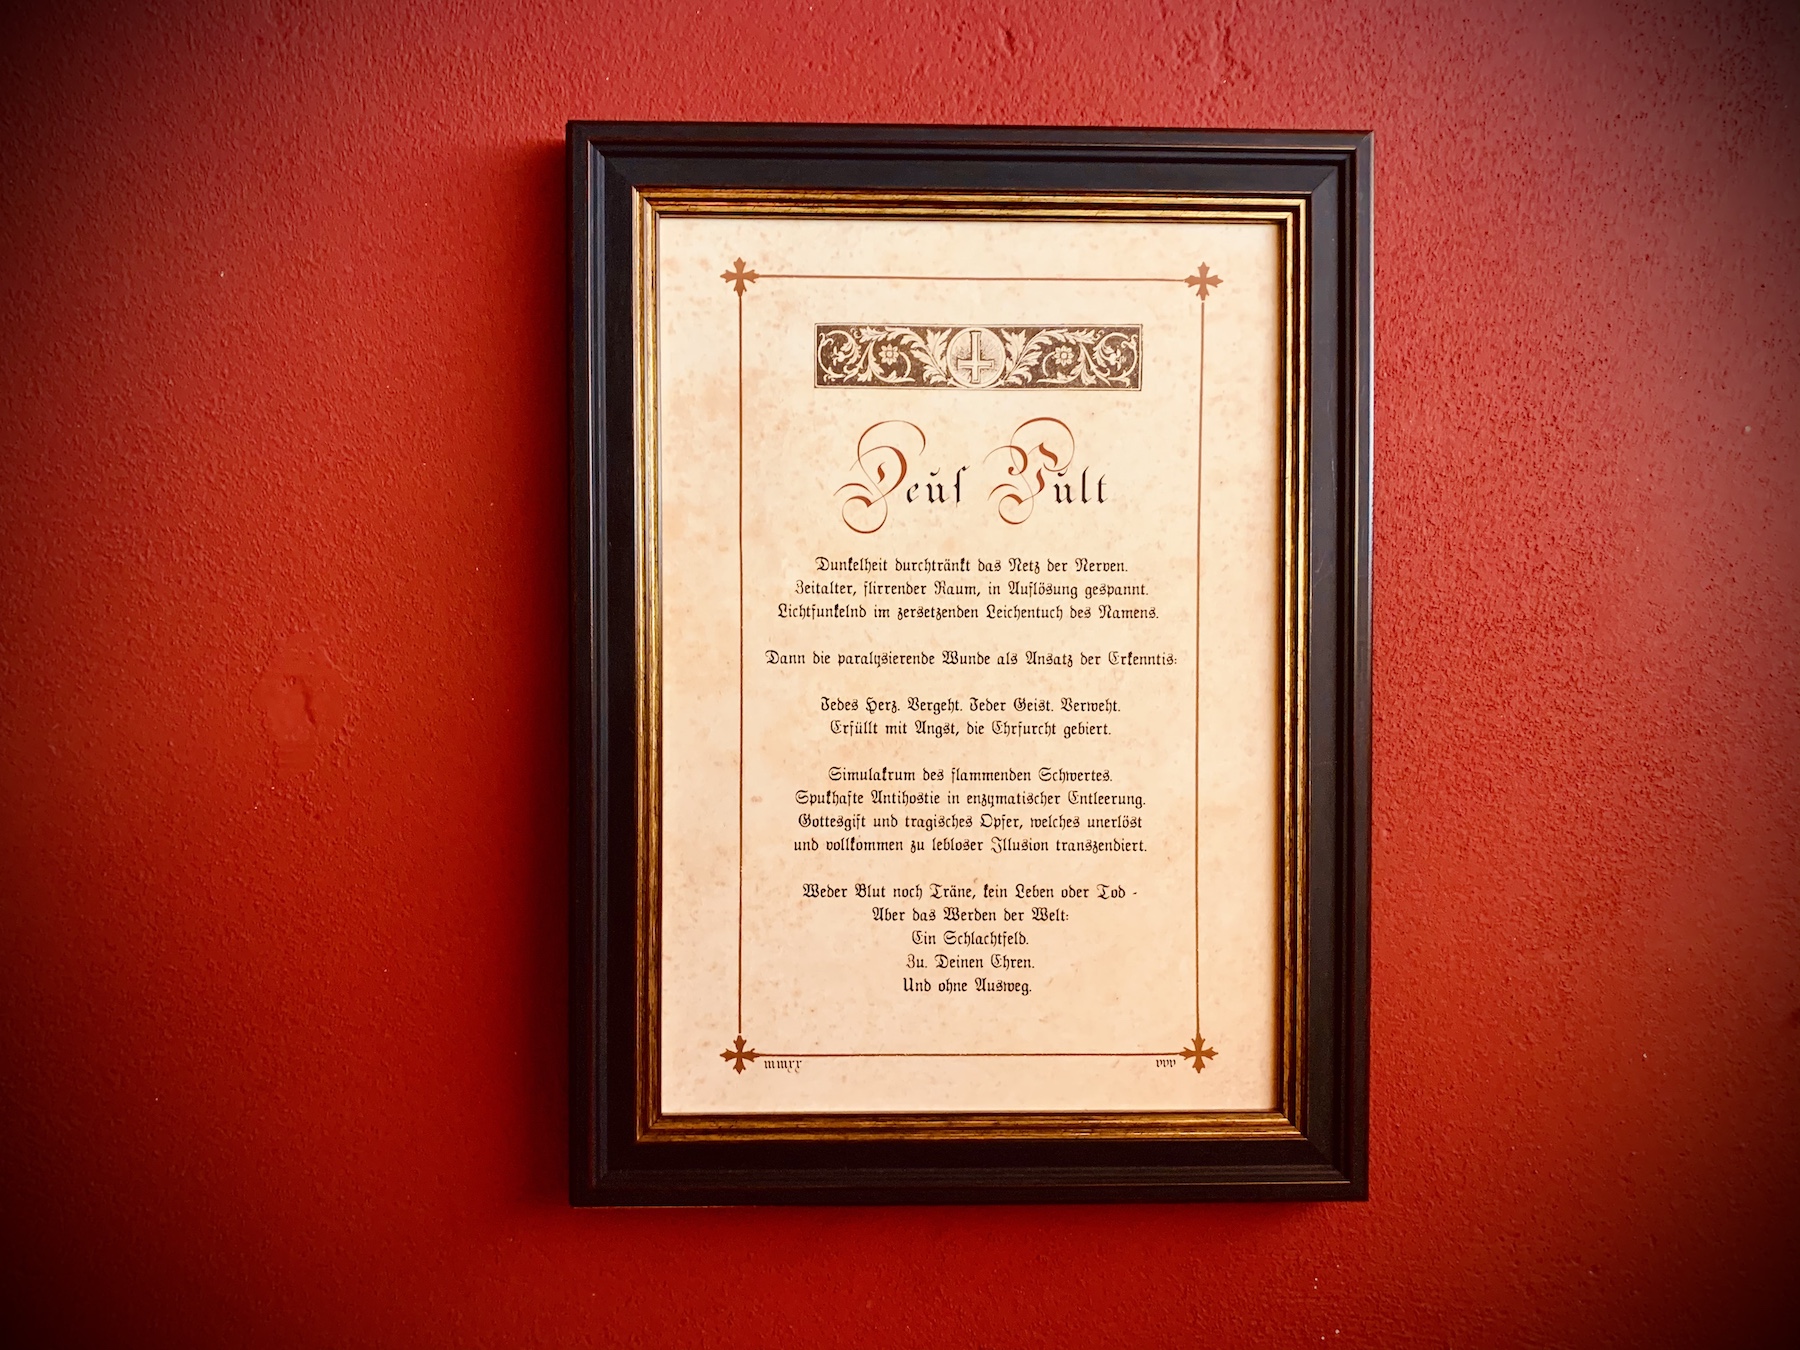 Deuſ Vult
Dunkelheit durchtränkt das Netz der Nerven.
Zeitalter, flirrender Raum, in Auflösung gespannt.
Lichtfunkelnd im zersetzenden Leichentuch des Namens.
Dann die paralysierende Wunde als Ansatz der Erkenntis:
Jedes Herz. Vergeht. Jeder Geist. Verweht.
Erfüllt mit Angst, die Ehrfurcht gebiert.
Simulakrum des flammenden Schwertes.
Spukhafte Antihostie in enzymatischer Entleerung.
Gottesgift und tragisches Opfer, welches unerlöst
und vollkommen zu lebloser Illusion transzendiert.
Weder Blut noch Träne, kein Leben oder Tod -
Aber das Werden der Welt:
Ein Schlachtfeld.
Zu. Deinen Ehren.
Und ohne Ausweg.
mmxx vvv